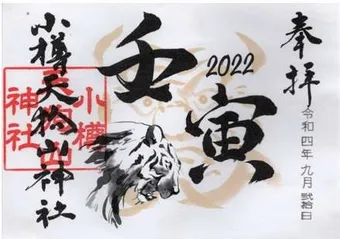 奉拝
令和四年 九月 弐拾日
2022
壬寅
小樽天狗山神社
小樽
神社